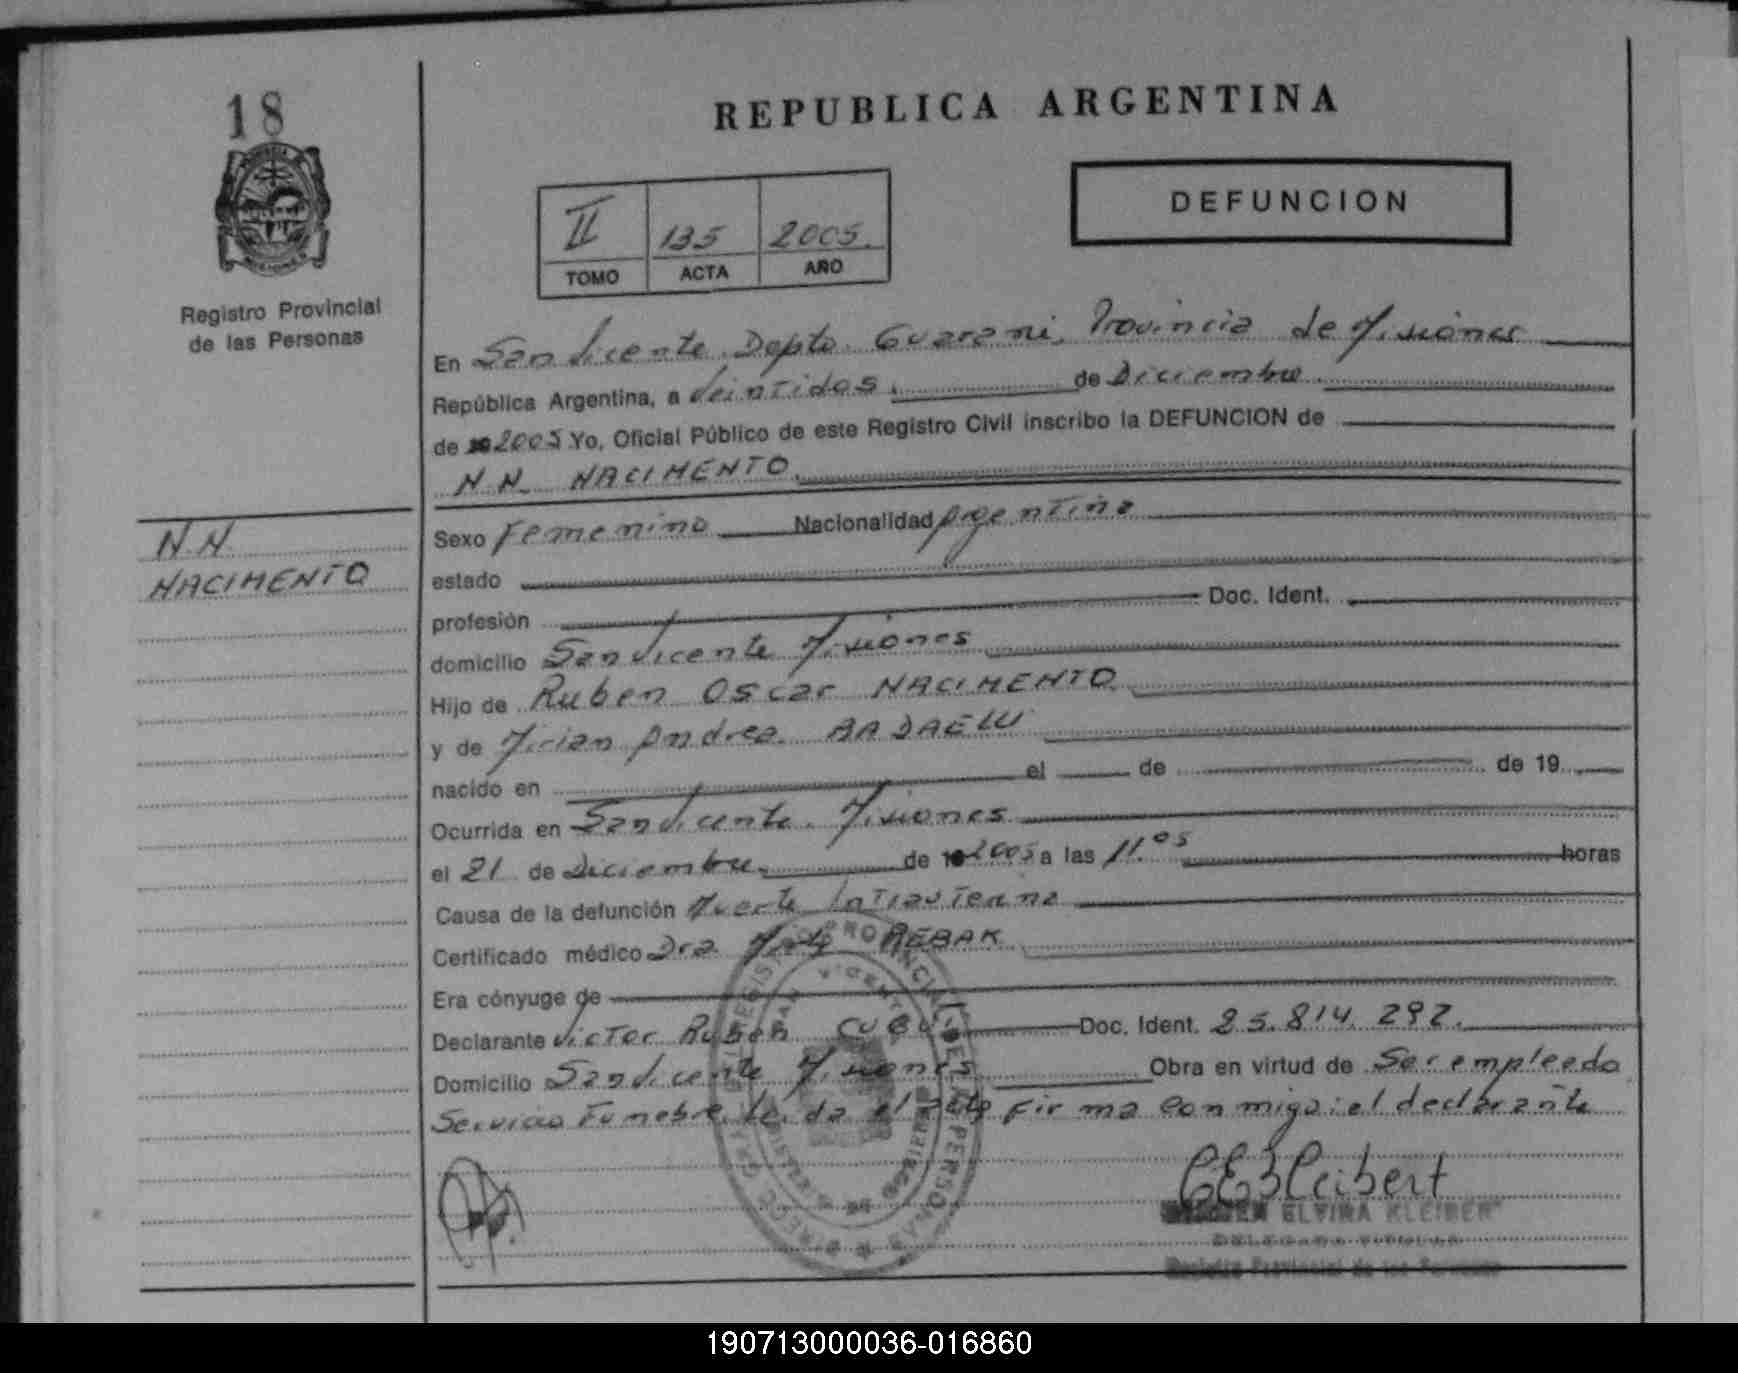 18
REPUBLICA ARGENTINA
DEFUNCION
II 135 2005.
TOMO ACTA AÑO
Registro Provincial
de las Personas
En San Vicente. Depto. Guarani, Provincia de Misiones
República Argentina, a Veintidos. de Diciembre.
de 2005 Yo, Oficial Público de este Registro Civil inscribo la DEFUNCION de
N.N. NACIMENTO.
N.N.
NACIMENTO
Sexo Femenino Nacionalidad Argentina
estado
profesión Doc. Ident.
domicilio San Vicente Misiones
Hijo de Ruben Oscar NACIMENTO.
y de Mirian Andrea
nacido en el de de 19
Ocurrida en San Vicente. Misiones.
el 21 de Diciembre. de 2005 a las 11.05 horas
Causa de la defunción Muerte Intrauterina
Certificado médico Dra. REBAK
Era cónyuge de
Declarante Victor Ruben Doc. Ident. 25.814.292.
Domicilio San Vicente Misiones Obra en virtud de Ser empleado
Servicio Funebre. Leida el acta firma conmigo: el declarante
CEKleibert
ELVIRA KLEIBER
Registro Provincial de las Personas
190713000036-016860